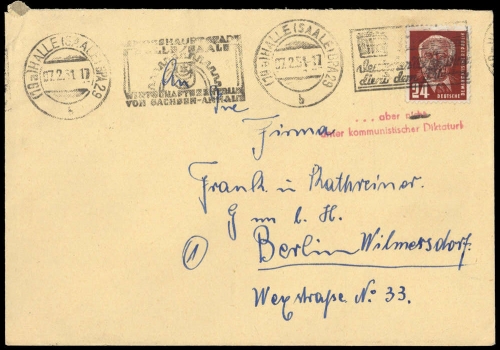 (19a) HALLE (SAALE) BZ 29
07.2.51.-17
b
LANDESHAUPTSTADT
HALLE/SAALE
WIRTSCHAFTSZENTRUM
VON SACHSEN-ANHALT
(19a) HALLE (SAALE) 29
07.2.51.-17
b
24
DEUTSCHE
... aber nicht
unter kommunistischer Diktatur!
An
die
Firma
Frank u Kathreiner.
G m b. H.
1
Berlin Wilmersdorf.
Wexstraße No 33.